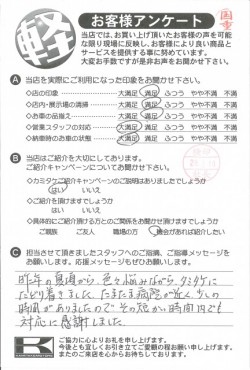 軽
お客様アンケート
当店では、お買い上げ頂いたお客様の声を可能
な限り現場に反映し、お客様により良い商品と
サービスを提供する事に努めています。
大変お手数ですが是非お声をお聞かせ下さい。
A 当店を実際にご利用になった印象をお聞かせ下さい。
◇店の印象 大満足 満足 ふつう やや不満 不満
◇店内・展示場の清掃 大満足 満足 ふつう やや不満 不満
◇お車の品揃え 大満足 満足 ふつう やや不満 不満
◇営業スタッフの対応 大満足 満足 ふつう やや不満 不満
◇納車時のお車の状態 大満足 満足 ふつう やや不満 不満
B 当店はご紹介を大切にしております。
ご紹介キャンペーンについてお聞かせ下さい。
◇カミタケご紹介キャンペーンのご説明はありましたでしょうか
はい いいえ
◇ご紹介をお聞かせ頂けますでしょうか
はい いいえ
◇具体的にご紹介頂ける方とのご関係をお聞かせ頂けますでしょうか
ご親族 ご友人 職場の方 機会があれば紹介したい
C 担当させて頂きましたスタッフへのご指摘、ご指導をお
願いします。応援メッセージもぜひお願いします。
昨年の夏頃から、色々悩みながら、カミタケに
たどり着きました。たまたま病院が近く、少しの
時間がありましたので その短かい時間内でも
対応に感謝しました
K
ご協力に心よりお礼を申し上げます。
今後とも宜しくお引き立てご愛顧の程お願い申し上げます。
またのご来店を心からお待ちしております。